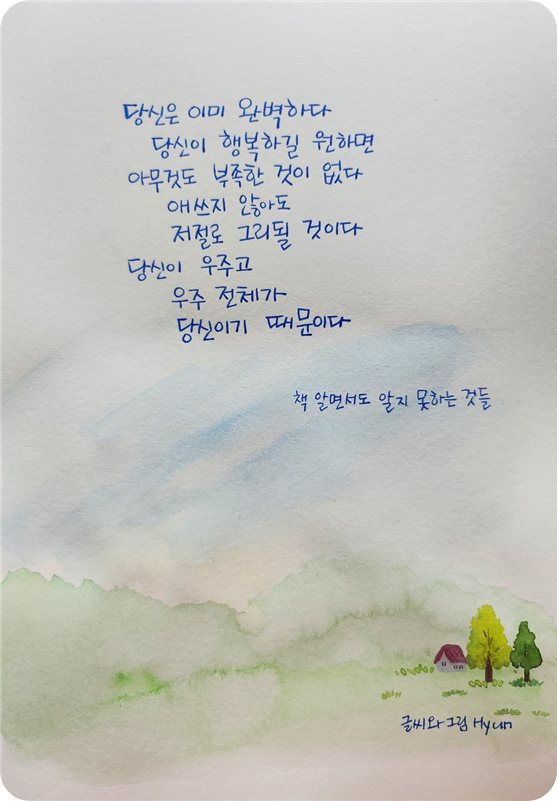 당신은 이미 완벽하다
당신이 행복하길 원하면
아무것도 부족한 것이 없다
애쓰지 않아도
저절로 그리될 것이다
당신이 우주고
우주 전체가
당신이기 때문이다
책 알면서도 알지 못하는 것들
글씨와 그림 Hyun